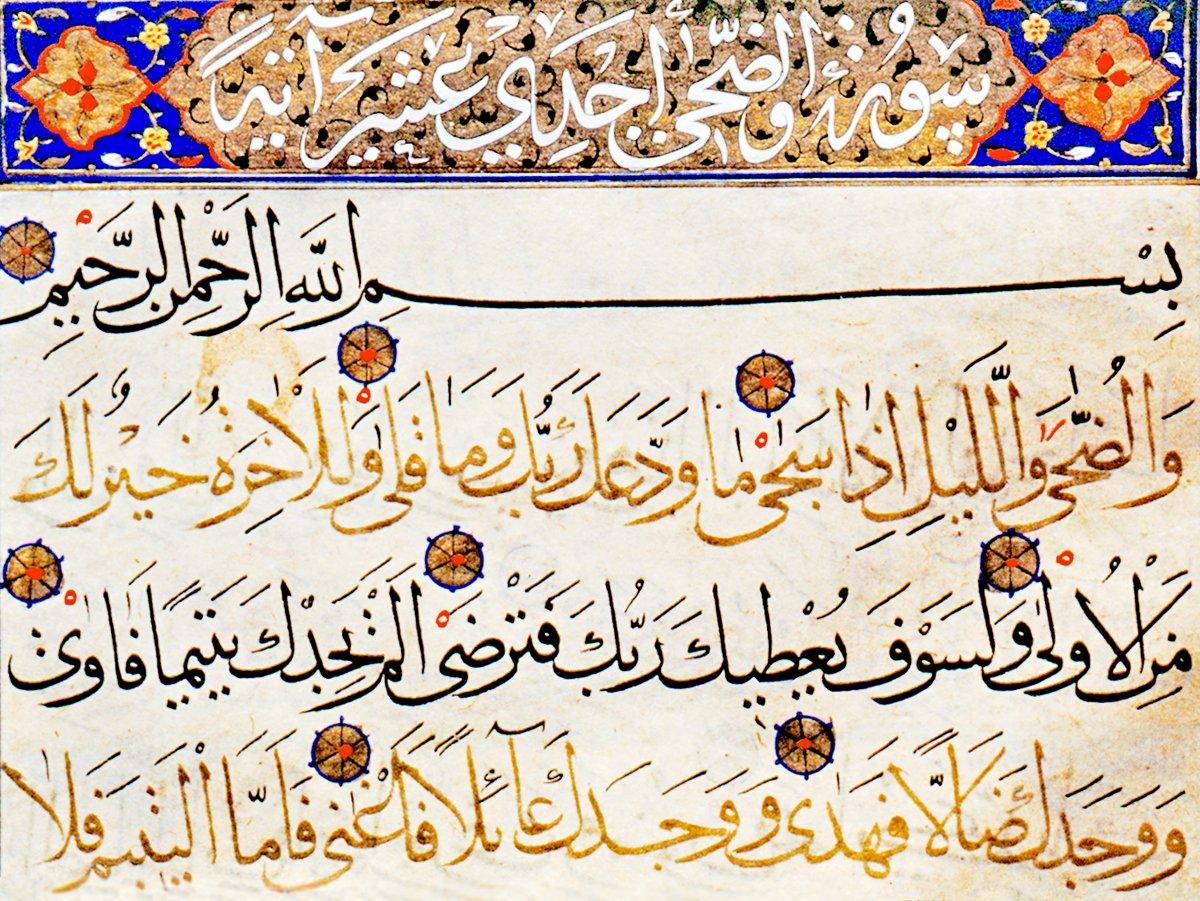 سورة والضحى احدي عشر آية
بِسْمِ اللَّهِ الرَّحْمٰنِ الرَّحِيمِ
وَالضُّحٰى وَاللَّيْلِ اِذَا سَجٰى مَا وَدَّعَكَ رَبُّكَ وَمَا قَلٰى وَلَلْاٰخِرَةُ خَيْرٌ لَكَ
مِنَ الْاُولٰى وَلَسَوْفَ يُعْطِيكَ رَبُّكَ فَتَرْضٰى اَلَمْ يَجِدْكَ يَتِيمًا فَاٰوٰى
وَوَجَدَكَ ضَالًّا فَهَدٰى وَوَجَدَكَ عَآئِلًا فَاَغْنٰى فَاَمَّا الْيَتِيمَ فَلَا